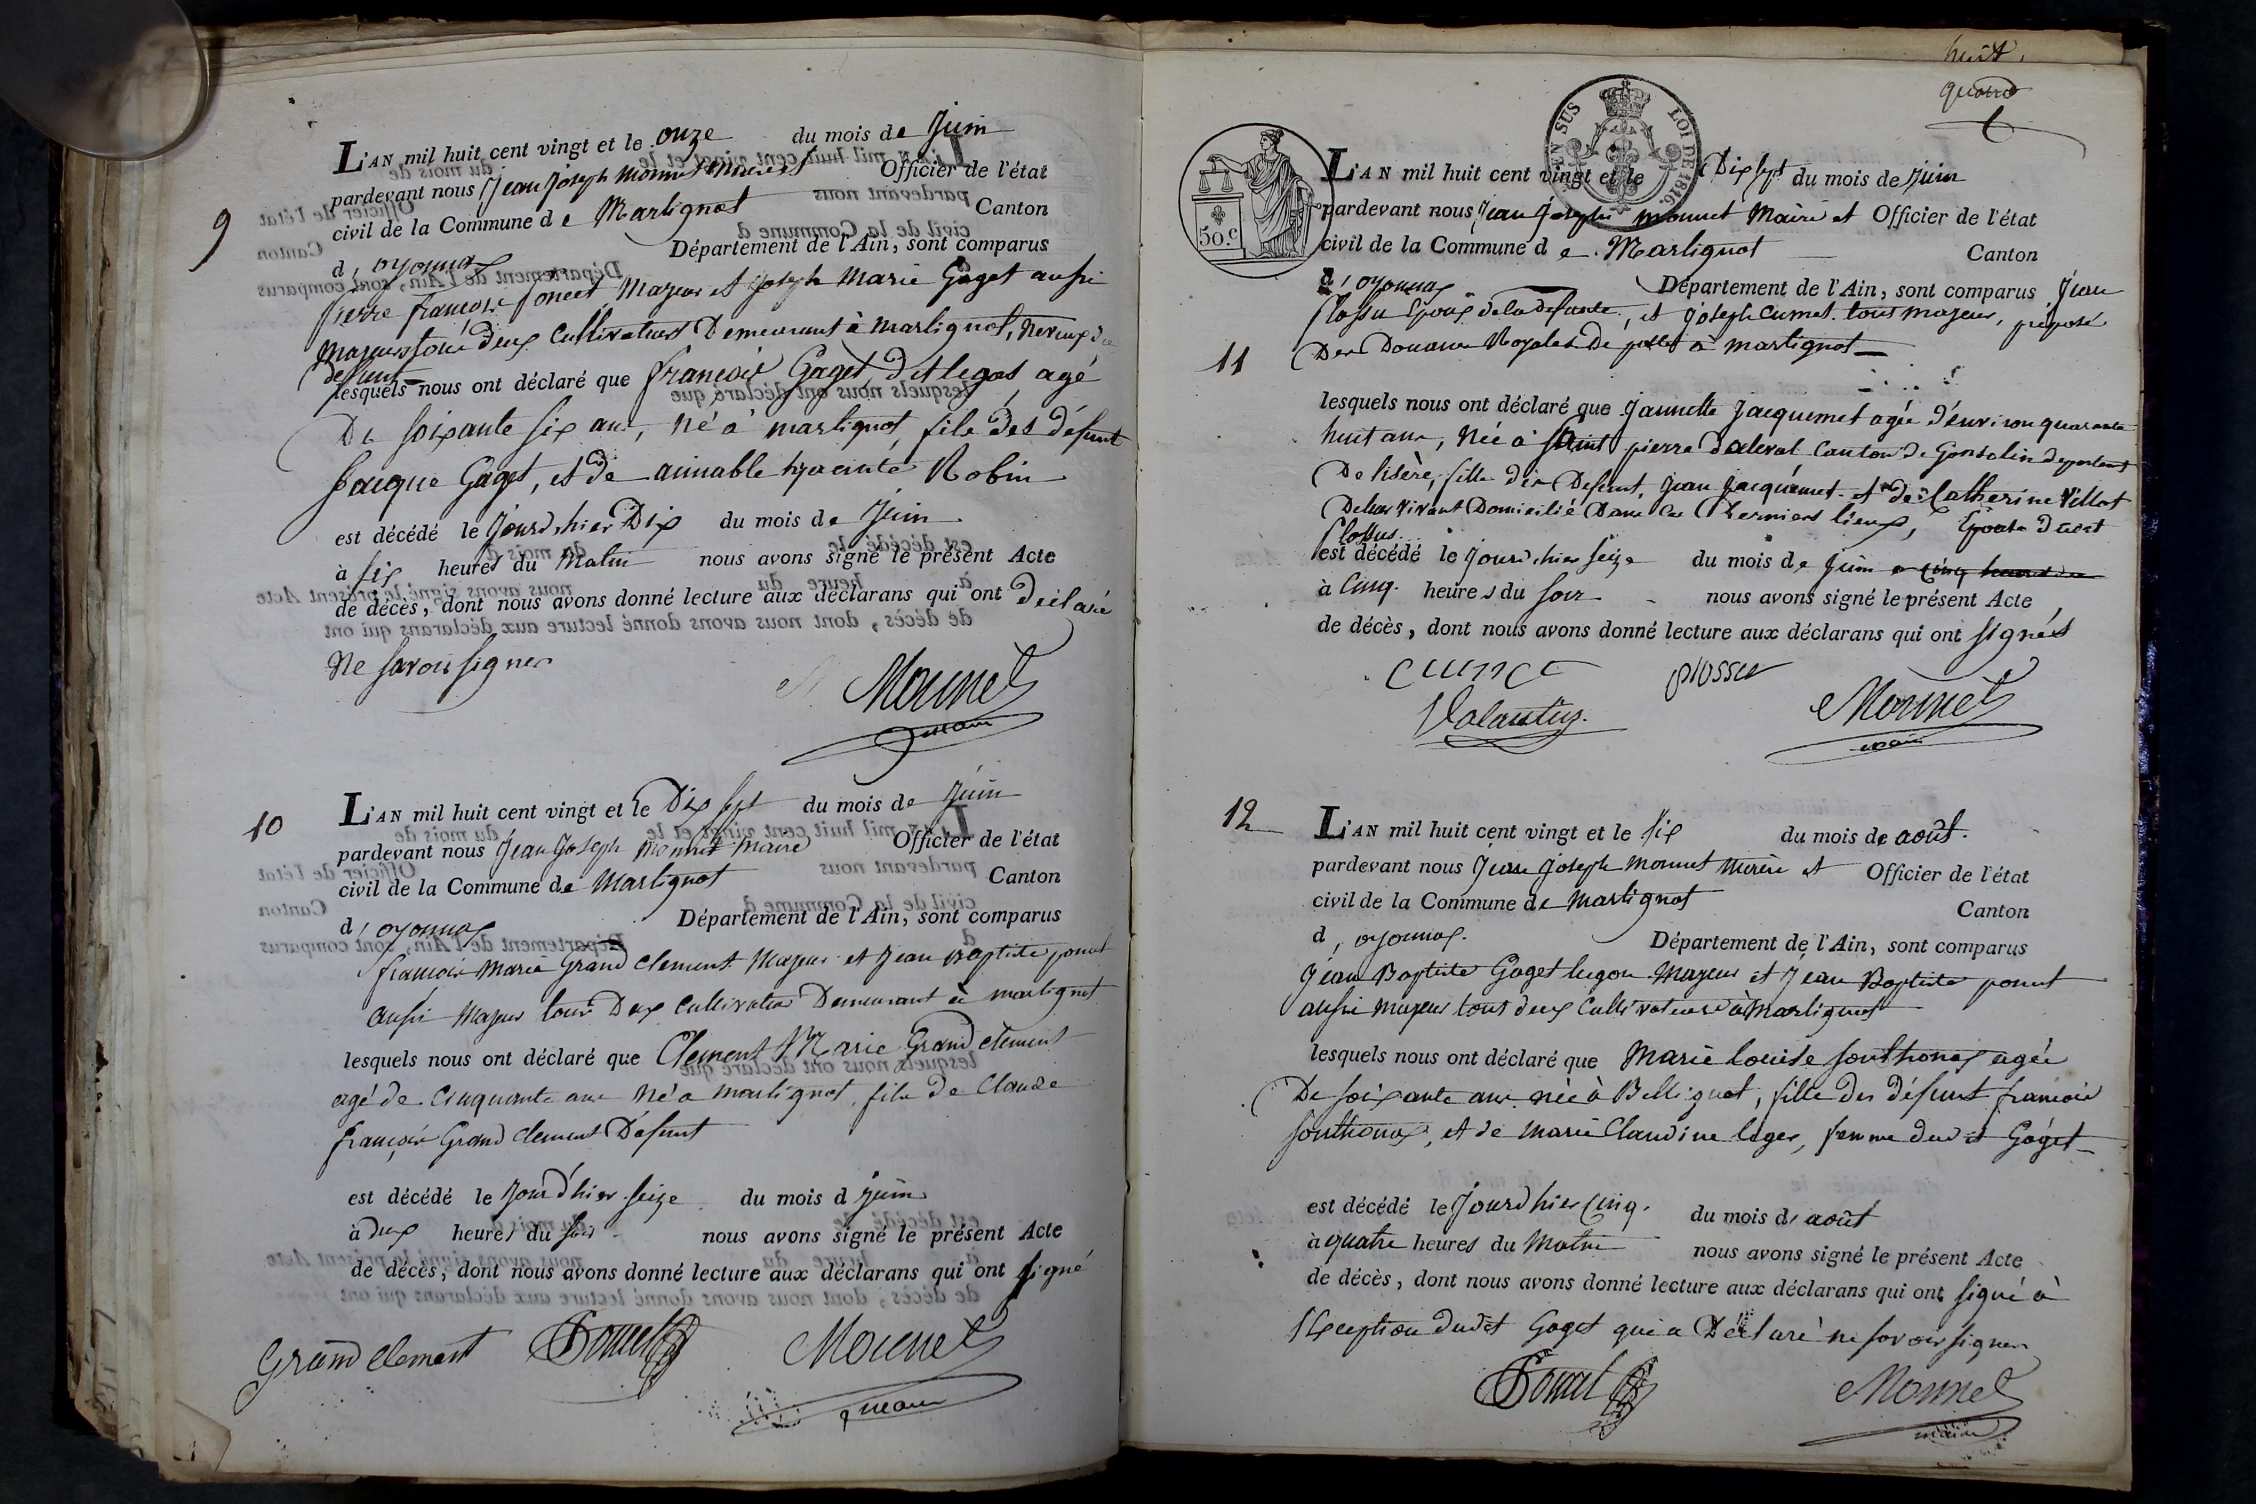 9
L'AN mil huit cent vingt et le onze du mois de Juin
pardevant nous Jean Joseph Monnet Maire et Officier de l'état
civil de la Commune de Martignat Canton
d'oyonnax Département de l'Ain, sont comparus
pierre françois poncet Majeur et Joseph Marie Gaget aussi
Majeur tous deux Cultivateurs Demeurant à Martignat, neveux du
defunt
lesquels nous ont déclaré que françois Gaget, dit legos, agé
De soixante six ans, né à martignat, fils des défunt
Jacque Gaget, et de aimable hyacinte Robin
est décédé le Jourd'hier Dix du mois de Juin
à six heures du Matin nous avons signé le présent Acte
de décès, dont nous avons donné lecture aux déclarans qui ont déclaré
Ne savoir signer
Monnet
maire
10
L'AN mil huit cent vingt et le Dix sept du mois de Juin
pardevant nous Jean Joseph Monnet Maire Officier de l'état
civil de la Commune de Martignat Canton
d'oyonnax Département de l'Ain, sont comparus
françois Marie Grand clement Majeur et Jean Baptiste poncet
aussi Majeur tous Deux Cultivateur Demeurant à martignat
lesquels nous ont déclaré que Clement Marie Grand clement
agé de Cinquante ans né a martignat, fils de Claude
françois Grand clement Défunt
est décédé le Jourd'hier seize du mois d Juin
à deux heures du soir nous avons signé le présent Acte
de décès, dont nous avons donné lecture aux déclarans qui ont signé
Grand clement Poncet Monnet
maire
huit
quatre
EN SUS LOI DE 1816.
50.c
L'AN mil huit cent vingt et le Dix sept du mois de Juin
pardevant nous Jean Joseph Monnet Maire et Officier de l'état
civil de la Commune de Martignat Canton
d'oyonnax Département de l'Ain, sont comparus Jean
plossu Epoux de la defunte, et Joseph Cumet tous majeur, préposé
11
Des Douane Royales De poste à martignat
lesquels nous ont déclaré que Jannette Jacquemet agée d'environ quarante
huit ans, Née à Saint pierre dalevat Canton de Gonselin departement
De l'isère, fille des Defunt, Jean Jacquemet et de Catherine Villot
De leur vivant Domicilié Dans les Derniers lieux, Epouse dudit
plossu
est décédé le Jourd'hier seize du mois de Juin
à Cinq heures du soir nous avons signé le présent Acte
de décès, dont nous avons donné lecture aux déclarans qui ont signés
plossu
Monnet
maire
12
L'AN mil huit cent vingt et le six du mois de août.
pardevant nous Jean Joseph Monnet Maire et Officier de l'état
civil de la Commune de Martignat Canton
d'oyonnax. Département de l'Ain, sont comparus
Jean Baptiste Gaget legon Majeur et Jean Baptiste poncet
aussi majeur tous deux Cultivateurs à Martignat
lesquels nous ont déclaré que Marie Louise Sonthonax agée
De soixante ans née à Bellignat, fille des défunt françois
Sonthonax, et de Marie Claudine leger, femme dudit Gaget
est décédé le Jourd'hier Cinq du mois de août
à quatre heures du Matin nous avons signé le présent Acte
de décès, dont nous avons donné lecture aux déclarans qui ont signé à
l'exception dudit Gaget qui a Déclaré ne savoir signer
Poncet Monnet
maire